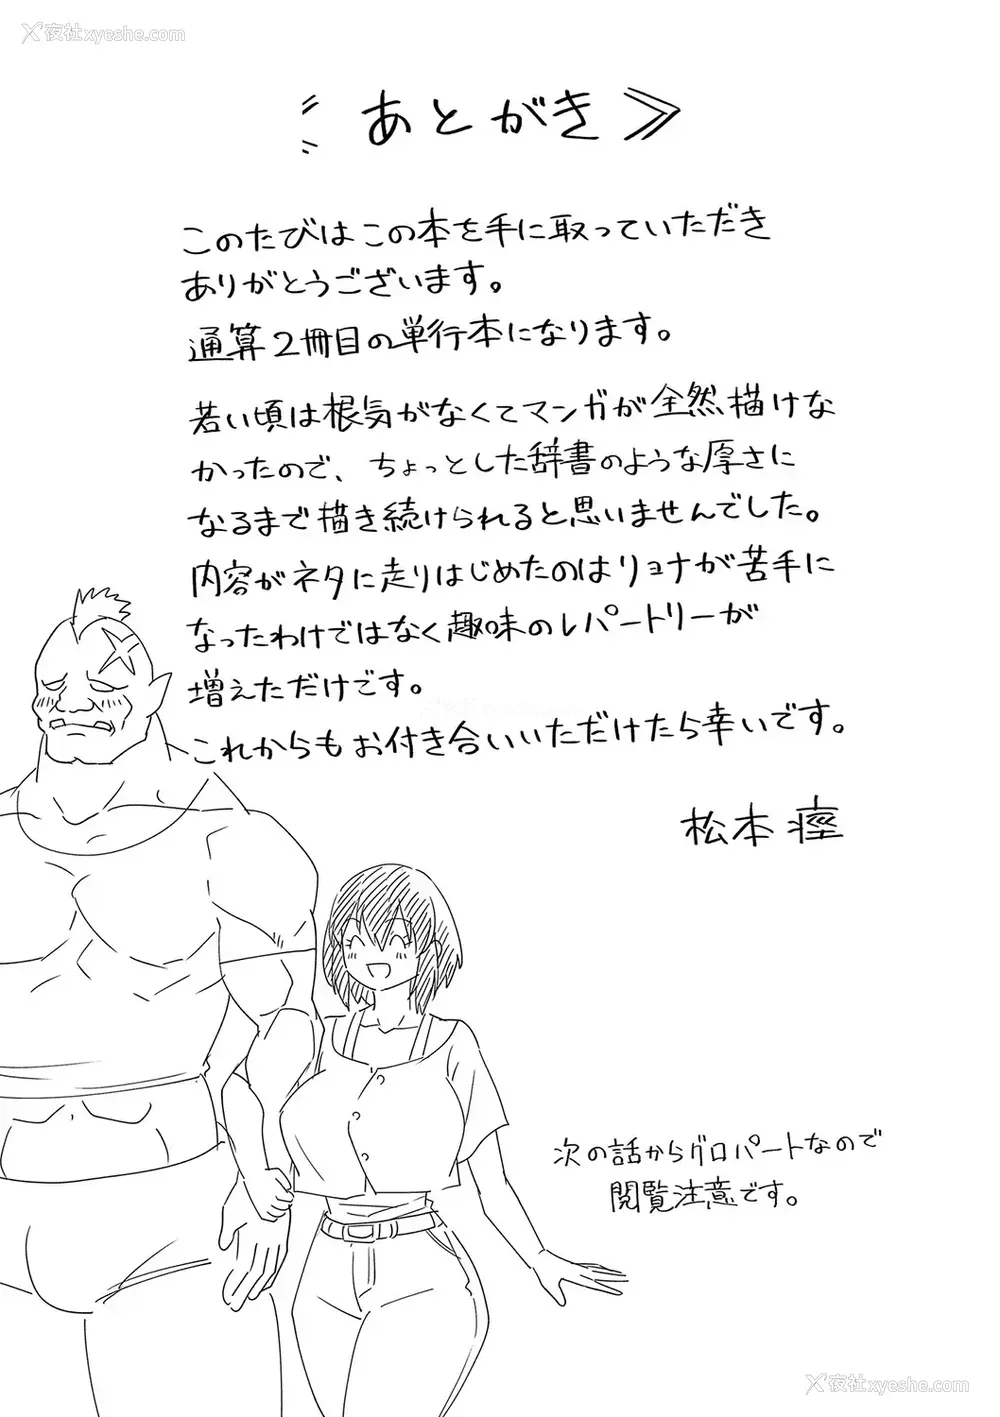 夜社xyeshe.com
《あとがき》
このたびはこの本を手に取っていただき
ありがとうございます。
通算2冊目の単行本になります。
若い頃は根気がなくてマンガが全然描けな
かったので、ちょっとした辞書のような厚さに
なるまで描き続けられると思いませんでした。
内容がネタに走りはじめたのはリョナが苦手に
なったわけではなく趣味のレパートリーが
増えただけです。
これからもお付き合いいただけたら幸いです。
松本痙
次の話からグロパートなので
閲覧注意です。
夜社xyeshe.com